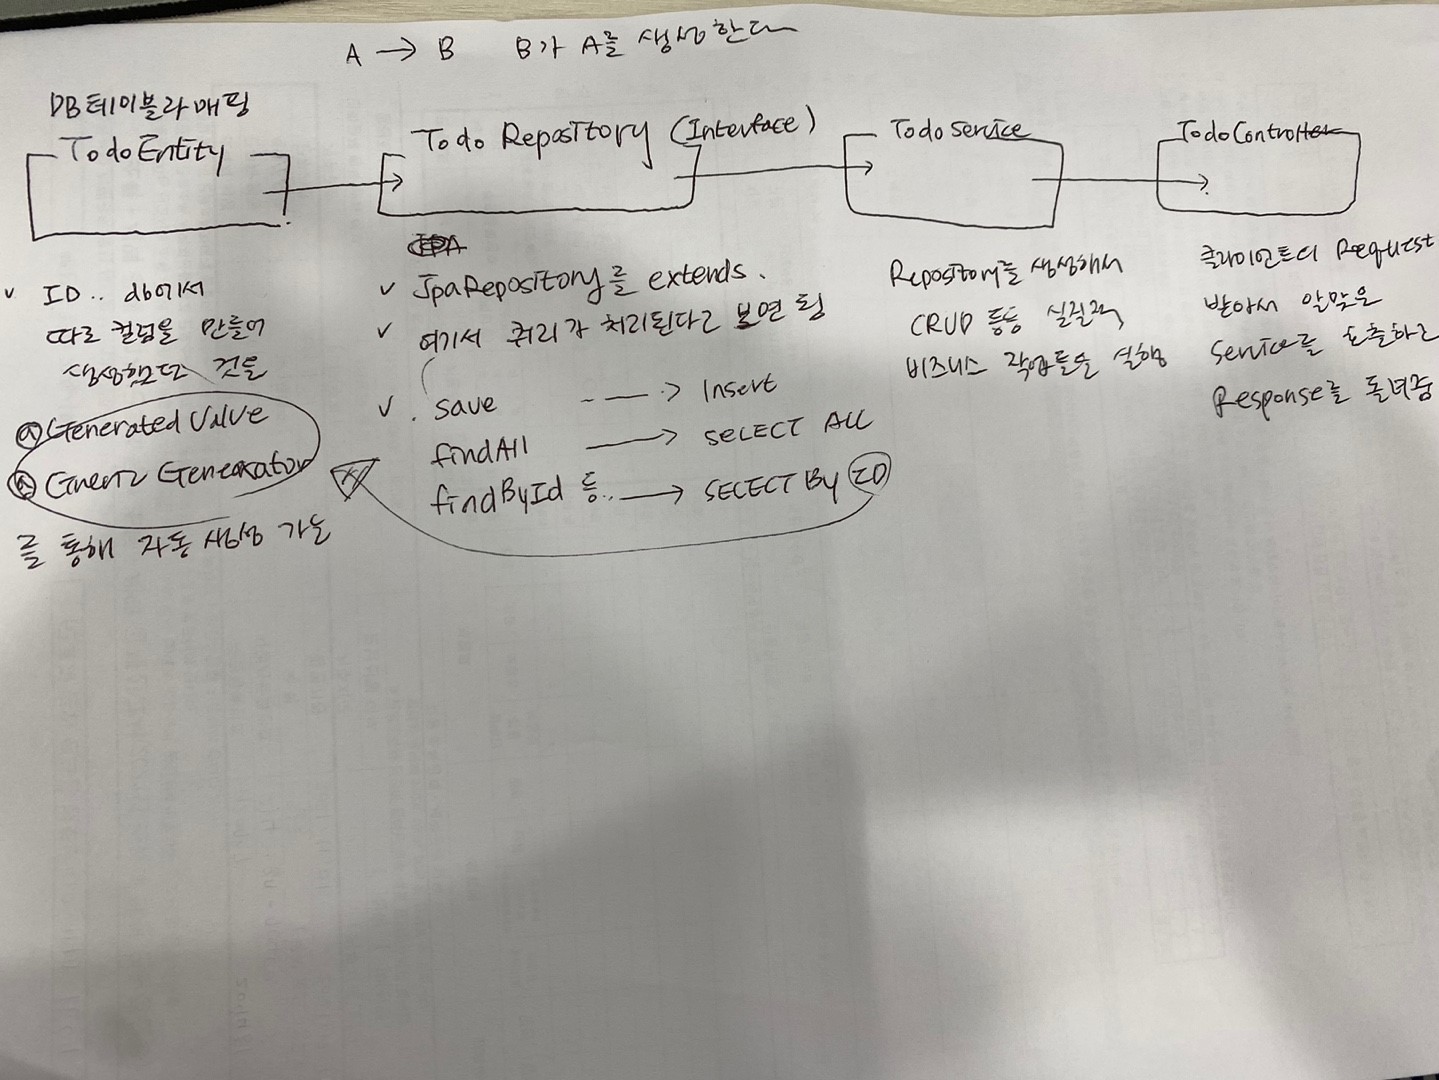 A → B B가 A를 생성한다
DB테이블과 매핑
TodoEntity
Todo Repository (Interface)
Todo Service
TodoController
✓ ID.. db에서
따로 컬럼을 만들어
생성했던 것을
@Generated Value
@Generic Generator
를 통해 자동 생성 가능
✓ JpaRepository를 extends.
✓ 여기서 쿼리가 처리된다고 보면 됨
✓ . save ---> Insert
findAll → SELECT ALL
findById 등.. → SELECT By ID
Repository를 생성해서
CRUD 등등 실질적
비즈니스 작업들을 실행
클라이언트의 Request
받아서 알맞은
Service를 호출하고
Response를 돌려줌